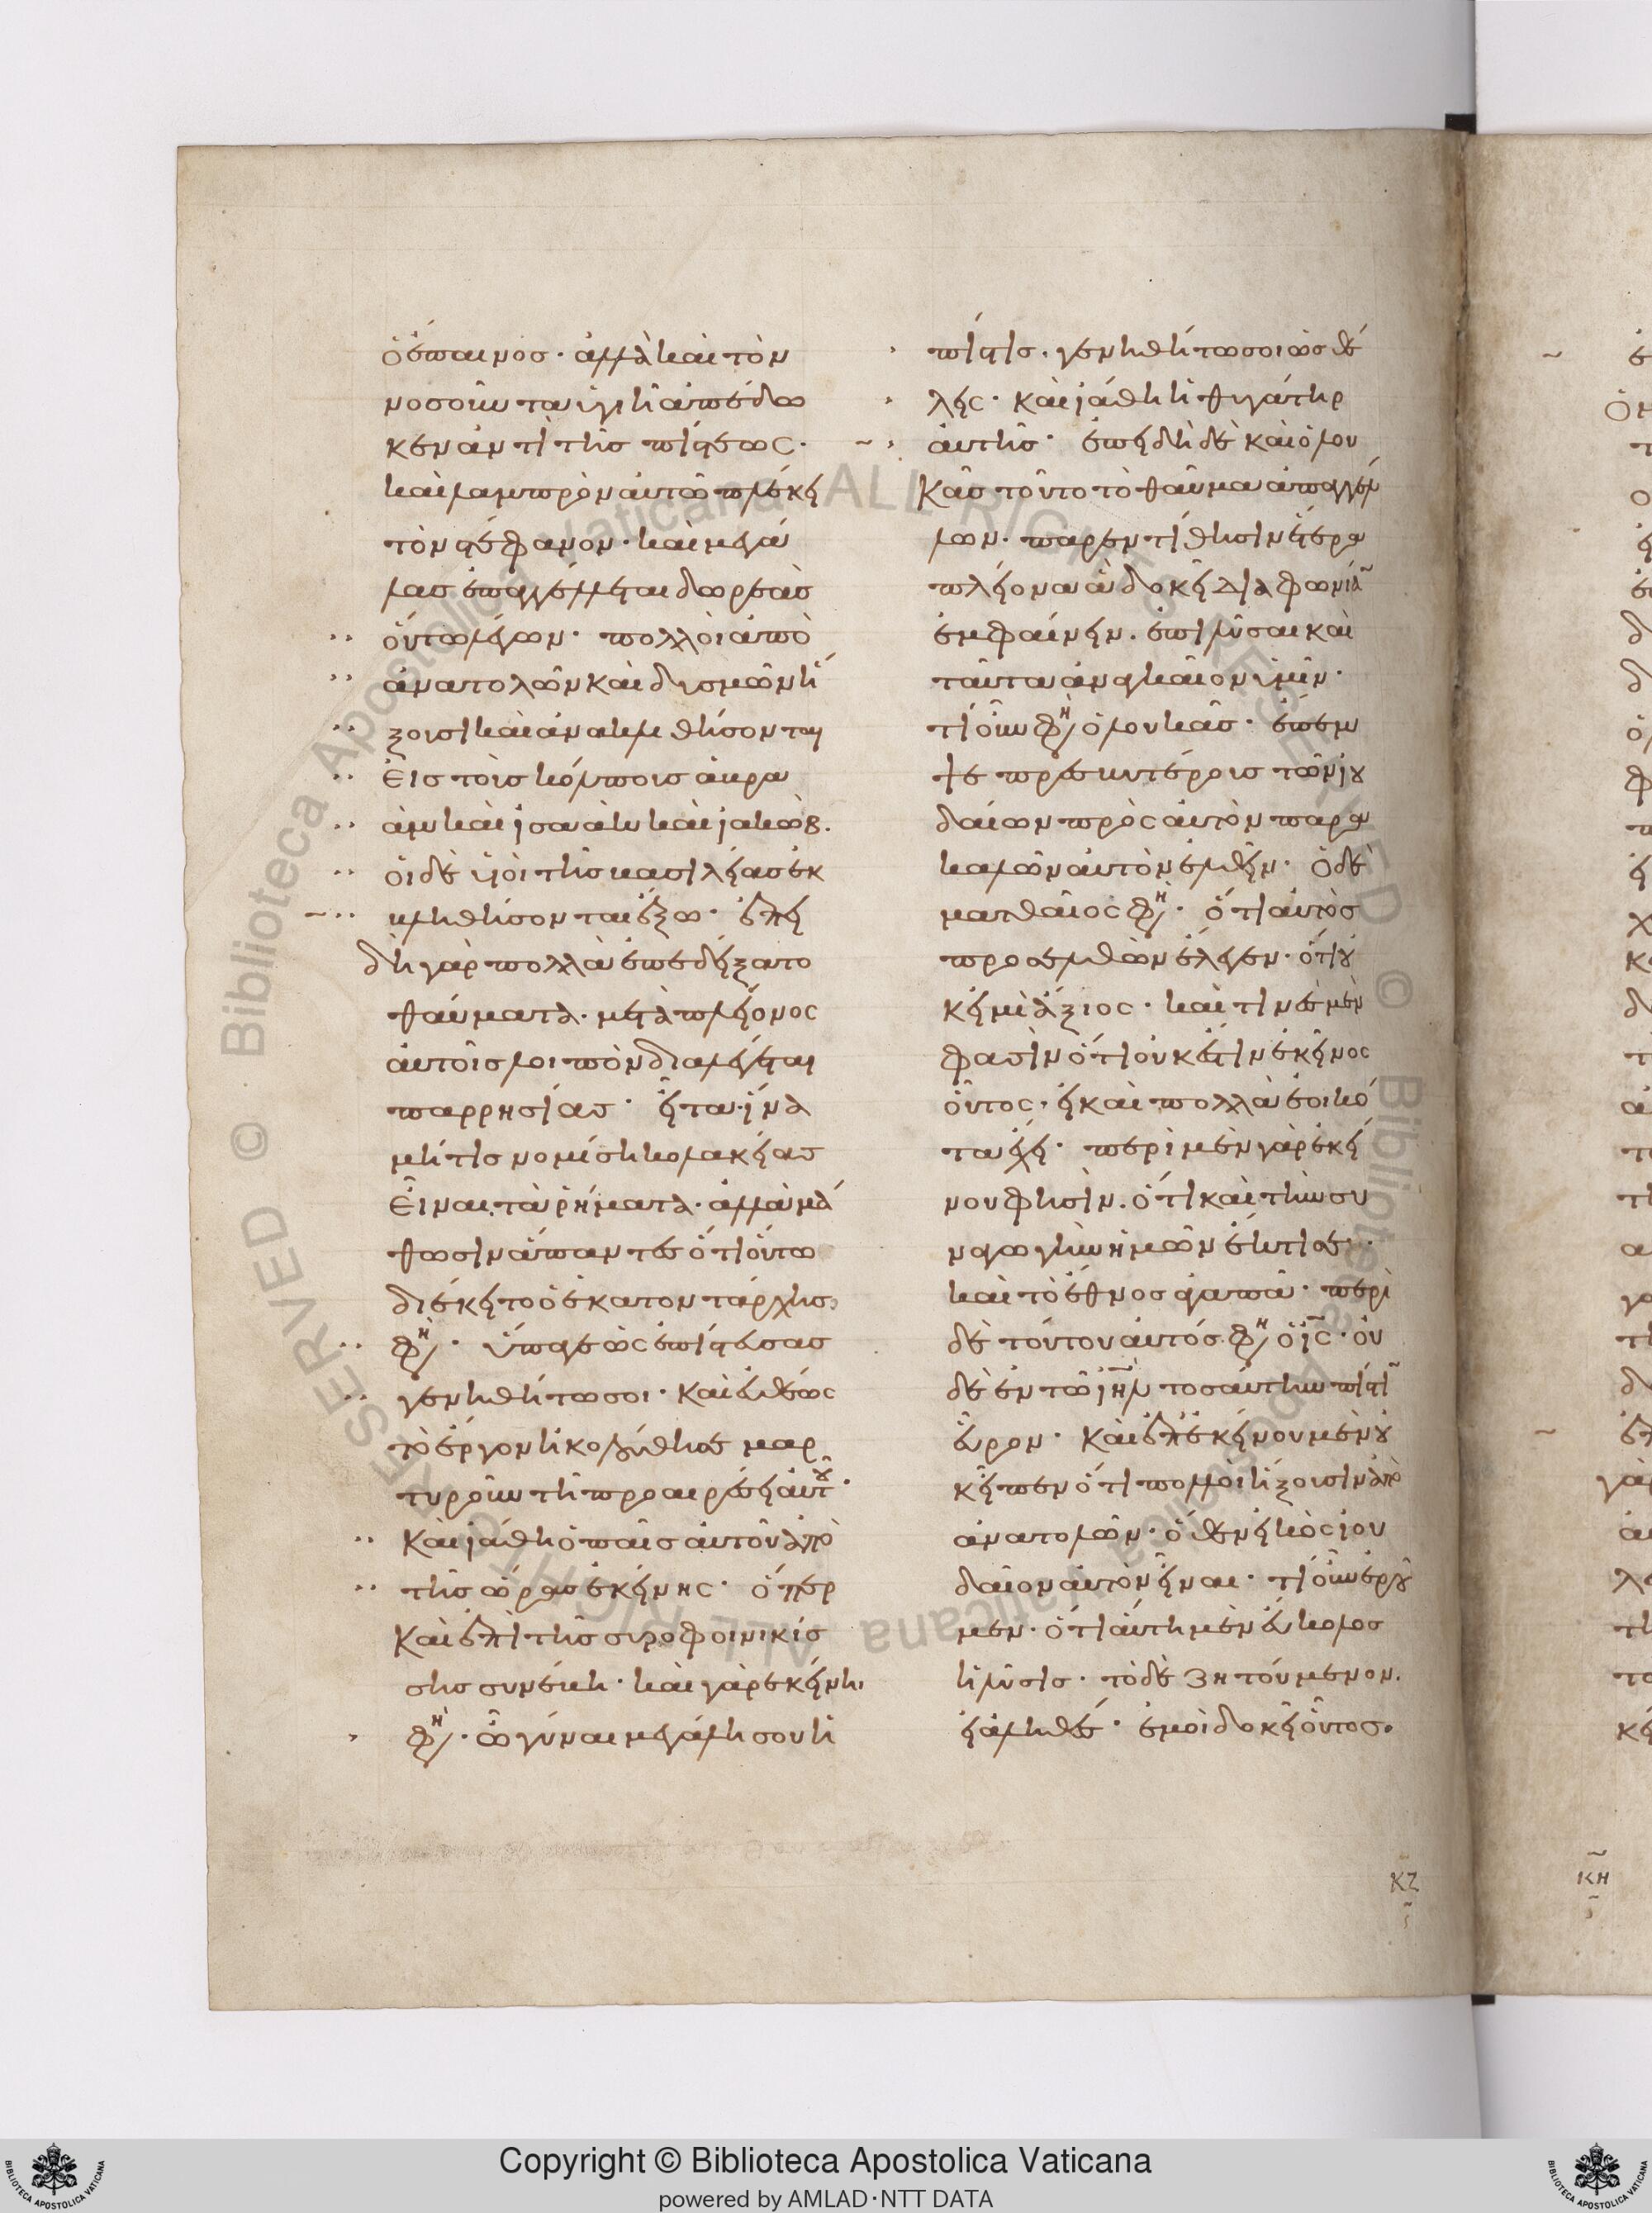 ὁ ἔπαινος· ἀλλὰ καὶ τὸν
νοσοῦντα ὑγιῆ ἀπέδω
κεν ἀντὶ τῆς πίστεως·
καὶ λαμπρὸν αὐτῶ πλέκει
τὸν στέφανον· καὶ μεγά
λας ἐπαγγέλλεται δωρεὰς
οὕτω λέγων· πολλοὶ ἀπὸ
ἀνατολῶν καὶ δυσμῶν ἥ
ξουσι καὶ ἀνακλιθήσονται
εἰς τοῖς κόλποις ἀβρα
ὰμ καὶ ἰσαὰκ καὶ ἰακώβ.
οἱ δὲ υἱοὶ τῆς βασιλείας ἐκ
βληθήσονται ἔξω· ἐπει
δὴ γὰρ πολλὰ ἐπεδείξατο
θαύματα· μετὰ πλείονος
αὐτοῖς λοιπὸν διαλέγεται
παρρησίας· εἶτα ἵνα
μή τις νομίση κολακείας
εἶναι τὰ ῥήματα· ἀλλὰ μά
θωσιν ἅπαντες ὅτι οὕτω
διέκειτο ὁ ἑκατοντάρχης,
φη· ὕπαγε ὡς ἐπίστευσας
γενηθήτω σοι· καὶ εὐθέως
τὸ ἔργον ἠκολούθησε μαρ
τυροῦν τῆ προαιρέσει αὐτοῦ·
καὶ ἰάθη ὁ παῖς αὐτοῦ ἀπὸ
τῆς ὥρας ἐκείνης· ὅπερ
καὶ ἐπὶ τῆς συροφοινικίσ
σης συνέβη· καὶ γὰρ ἐκείνη
φη· ὦ γύναι μεγάλη σου ἡ
πίστις· γενηθήτω σοι ὡς θέ
λεις· καὶ ἰάθη ἡ θυγάτηρ
αὐτῆς· ἐπειδὴ δὲ καὶ ὁ λου
κᾶς τοῦτο τὸ θαῦμα ἀπαγγέλ
λων· παρεντίθησιν ἕτερα
πλείονα ἃ δοκεῖ διαφωνίαν
ἐμφαίνειν· ἐπιλῦσαι καὶ
ταῦτα ἀναγκαῖον ὑμῖν·
τί οὖν φη ὁ λουκᾶς· ἔπεμ
ψε πρεσβυτέροις τῶν ἰου
δαίων πρὸς αὐτὸν παρα
καλῶν αὐτὸν ἐλθεῖν· ὁ δὲ
ματθαῖος φη· ὅτι αὐτὸς
προσελθὼν ἔλεγεν· ὅτι οὐ
κ εἰμὶ ἄξιος· καὶ τινὲς μέν
φασιν ὅτι οὐκ ἔστιν ἐκεῖνος
οὗτος· εἰ καὶ πολλὰ ἐοικό
τα ἔχει· περὶ μὲν γὰρ ἐκεί
νου φησὶν· ὅτι καὶ τὴν συ
ναγωγὴν ἡμῶν ἔκτισε·
καὶ τὸ ἔθνος ἀγαπᾶ· περὶ
δὲ τούτου αὐτός φη ὁ ις· οὐ
δὲ ἐν τῶ ιηλ τοσαύτην πίστιν
εὗρον· καὶ ἐπ' ἐκείνου μὲν οὐ
κ εἶπεν ὅτι πολλοὶ ἥξουσιν ἀπὸ
ἀνατολῶν· ὅθεν εἰκὸς ἰου
δαῖον αὐτὸν εἶναι· τί οὖν ἐροῦ
μεν· ὅτι αὕτη μὲν εὔκολος
ἡ λύσις· τὸ δὲ ζητούμενον.
εἰ ἀληθές· ἐμοὶ δοκεῖ οὗτος.
κζ
κη
Copyright © Biblioteca Apostolica Vaticana
powered by AMLAD·NTT DATA